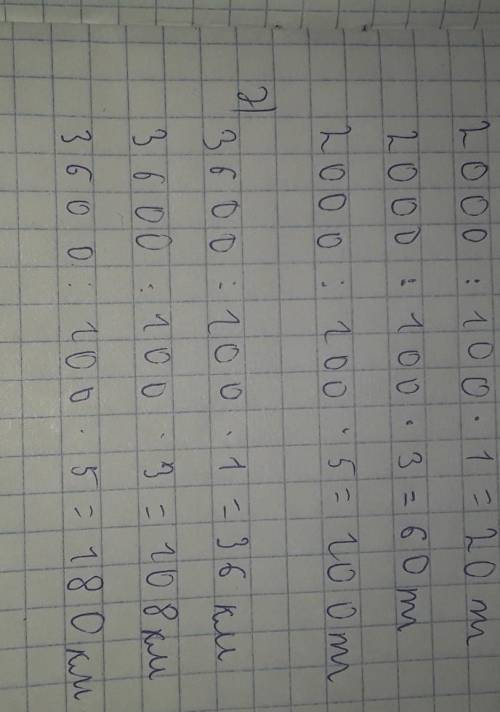 2000 : 100 · 1 = 20 т
2000 : 100 · 3 = 60 т
2000 : 100 · 5 = 100 т
2)
3600 : 100 · 1 = 36 км
3600 : 100 · 3 = 108 км
3600 : 100 · 5 = 180 км